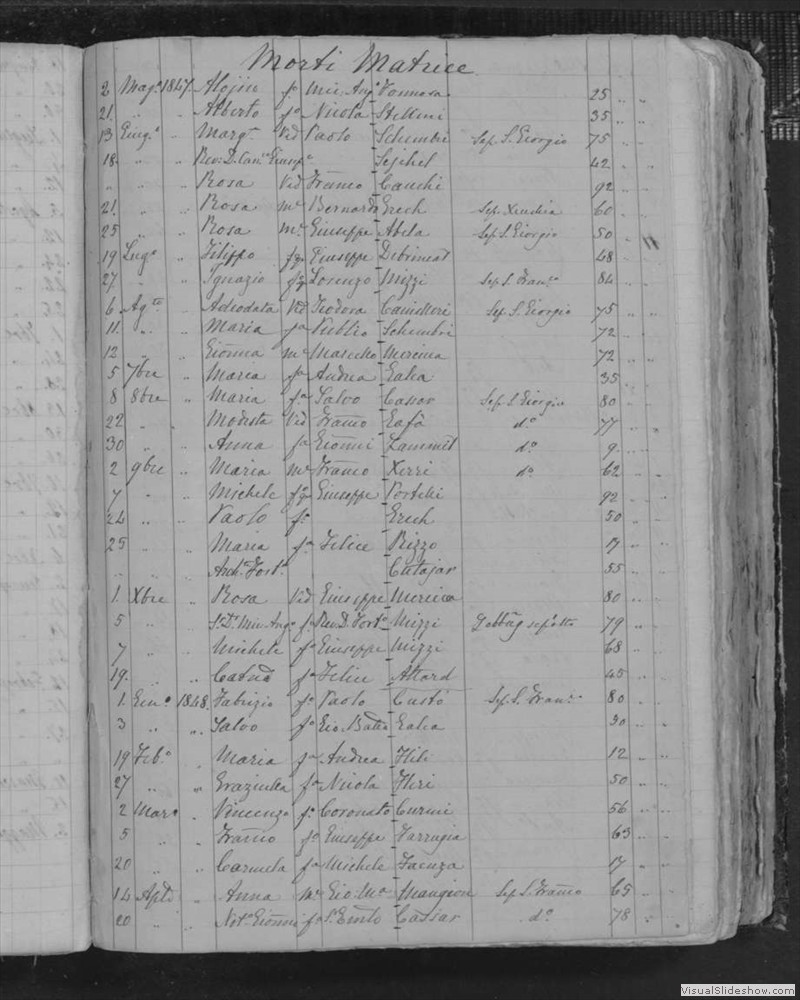 Morti Matrice
2 Mag.o 1847. Alojsio fo Mic. Ang.o Vonnosa 25 " "
21. " " Alberto fo Nicola Stellini 35 " "
13 Giug.o " Marg.ta Vid Paolo Schembri Sep. S. Giorgio 75 " "
18. " " Rev: D. Can.co Gius.e Sejchel 42 " "
" " " Rosa Vid Franco Cauchi 92 " "
21. " " Rosa me Bernardo Grech Sep. Xeuchia 60 " "
25 " " Rosa me Giuseppe Abela Sep. S. Giorgio 50 " "
19 Lug.o " Filippo fo Giuseppe Debrincat 48 " "
27. " " Ignazio fo Lorenzo Mizzi Sep. S. Fran.co 84 " "
6 Ag.to " Adeodata Vid Teodoro Camilleri Sep. S. Giorgio 75 " "
11. " " Maria fa Publio Schembri 72 " "
12 " " Gionna me Mercieca 72 " "
5 7bre " Maria fa Andrea Galea 35 " "
8 8bre " Maria fa Salvo Cassar Sep. S. Giorgio 80 " "
22 " " Modesta Vid Franco Gafà do 77 " "
30 " " Anna fa Gionni Zammit do 9 " "
2 9bre " Maria me Franco Xerri do 62 " "
7 " " Michele fo Giuseppe Portelli 92 " "
24 " " Paolo fo Grech 50 " "
25 " " Maria fa Felice Rizzo 17 " "
" " " Arch.e Fort.o Cutajar 55 " "
1. Xbre " Rosa Vid Giuseppe Mercieca 80 " "
5 " " Mic. Ang.o fo Rev. D. Fort.o Mizzi Gebbug sepolto 79 " "
7 " " Michele fo Giuseppe Mizzi 68 " "
19. " " Catna fa Felice Attard 45 " "
1. Gen.o 1848. Fabrizio fo Paolo Custò Sep. S. Fran.co 80 " "
3 " " Salvo fo Gio. Batta Galea 30 " "
19 Feb.o " Maria fa Andrea Hili 12 " "
27 " " Graziulla fa Nicola Hili 50 " "
2 Marzo " Vincenzo fo Coronato Curmi 56 " "
5 " " Franco fo Giuseppe Farrugia 63 " "
20 " " Carmela fa Michele Faenza 17 " "
14 Aple " Anna me Gio. Ma Mangion Sep. S. Franco 65 " "
20 " " Not.o Gionni fo Cassar do 78 " "
VisualSlideshow.com